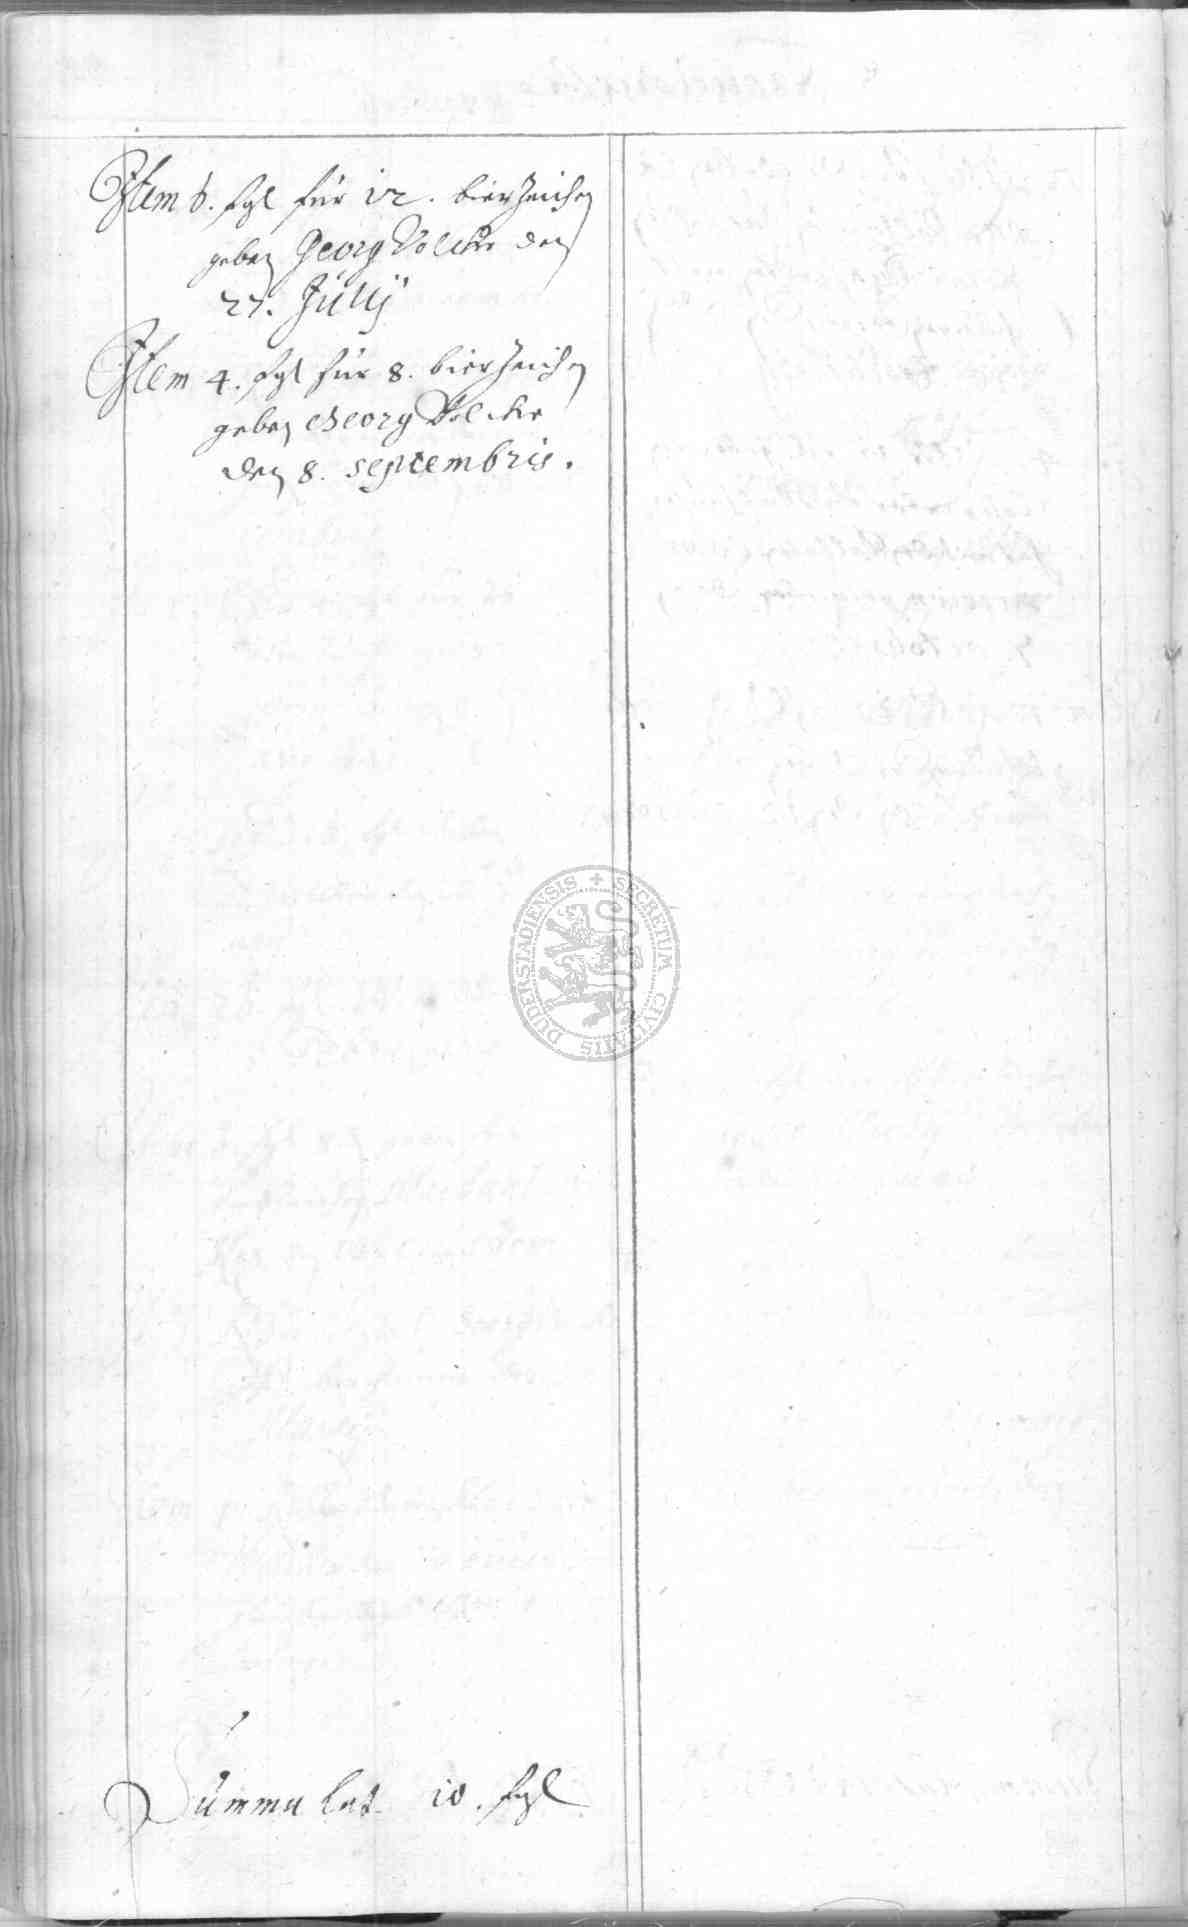 Item 6. fgl für 12. bierzeichen
geben Georg Volcke den
27. Julij
Item 4. fgl für 8. bierzeichen
geben Georg Volcke
den 8. septembris.
Summa Lat. 10. fgl
SECRETUM CIVITATIS DUDERSTADIENSIS